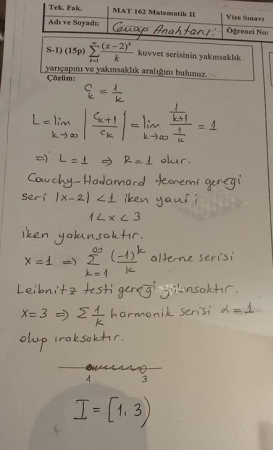 Tek. Fak. MAT 162 Matematik II Vize Sınavı
Adı ve Soyadı: Cevap Anahtarı Öğrenci No:
S-1) (15p) ∑_{k=1}^{∞} (x-2)^k / k kuvvet serisinin yakınsaklık
yarıçapını ve yakınsaklık aralığını bulunuz.
Çözüm:
C_k = 1/k
L = lim_{k→∞} |C_{k+1} / C_k| = lim_{k→∞} (1/(k+1)) / (1/k) = 1
⇒ L = 1 ⇒ R = 1 olur.
Cauchy-Hadamard teoremi gereği
seri |x-2| < 1 iken yani;
1 < x < 3
iken yakınsaktır.
x = 1 ⇒ ∑_{k=1}^{∞} (-1)^k / k alterne serisi
Leibnitz testi gereği yakınsaktır.
x = 3 ⇒ ∑ 1/k harmonik serisi α = 1
olup ıraksaktır.
1 3
I = [1, 3)